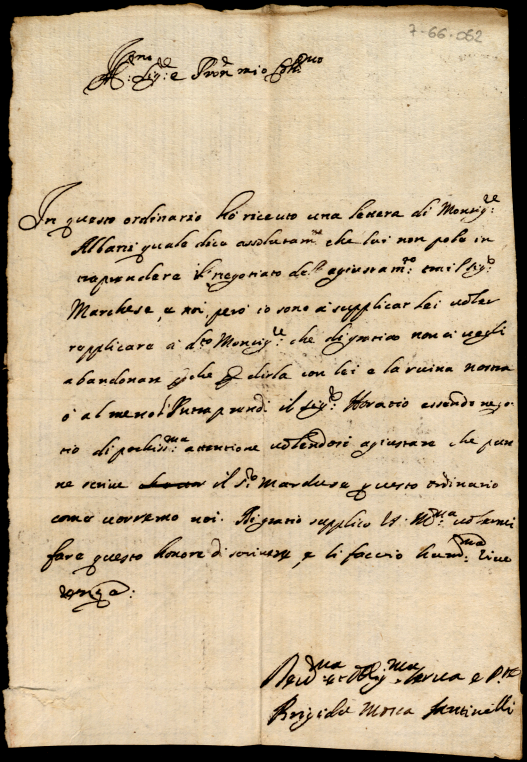 7-66-062
Ill.mo Sig.re e Pron mio Coll.mo
In questo ordinario hò riceuto una lettera di Monsig.re
Albani quale dice assolutam.te che lui non pole in
traprendere il negotiato del agiustam.to tra il Sig.r
Marchese, e noi, però io sono à supplicar lei voler
rapplicare à d.to Monsig.re che di gratia non ci vogli
abandonare che dirla con lei e la ruina nostra
ò al meno l'Intraprendi il Sig.r Horatio essendo nego
tio di pochiss.ma attentione volendosi agiustare che pure
ne scrive il S.r Marchese questo ordinario
come vorremo noi. Di gratia supplico V.S. Ill.ma volermi
fare questo honore di scrivere, e li faccio hum.ma rive
renza:
Dev.ma et Obl.ma serva e P.te
Brigida Mosca Santinelli